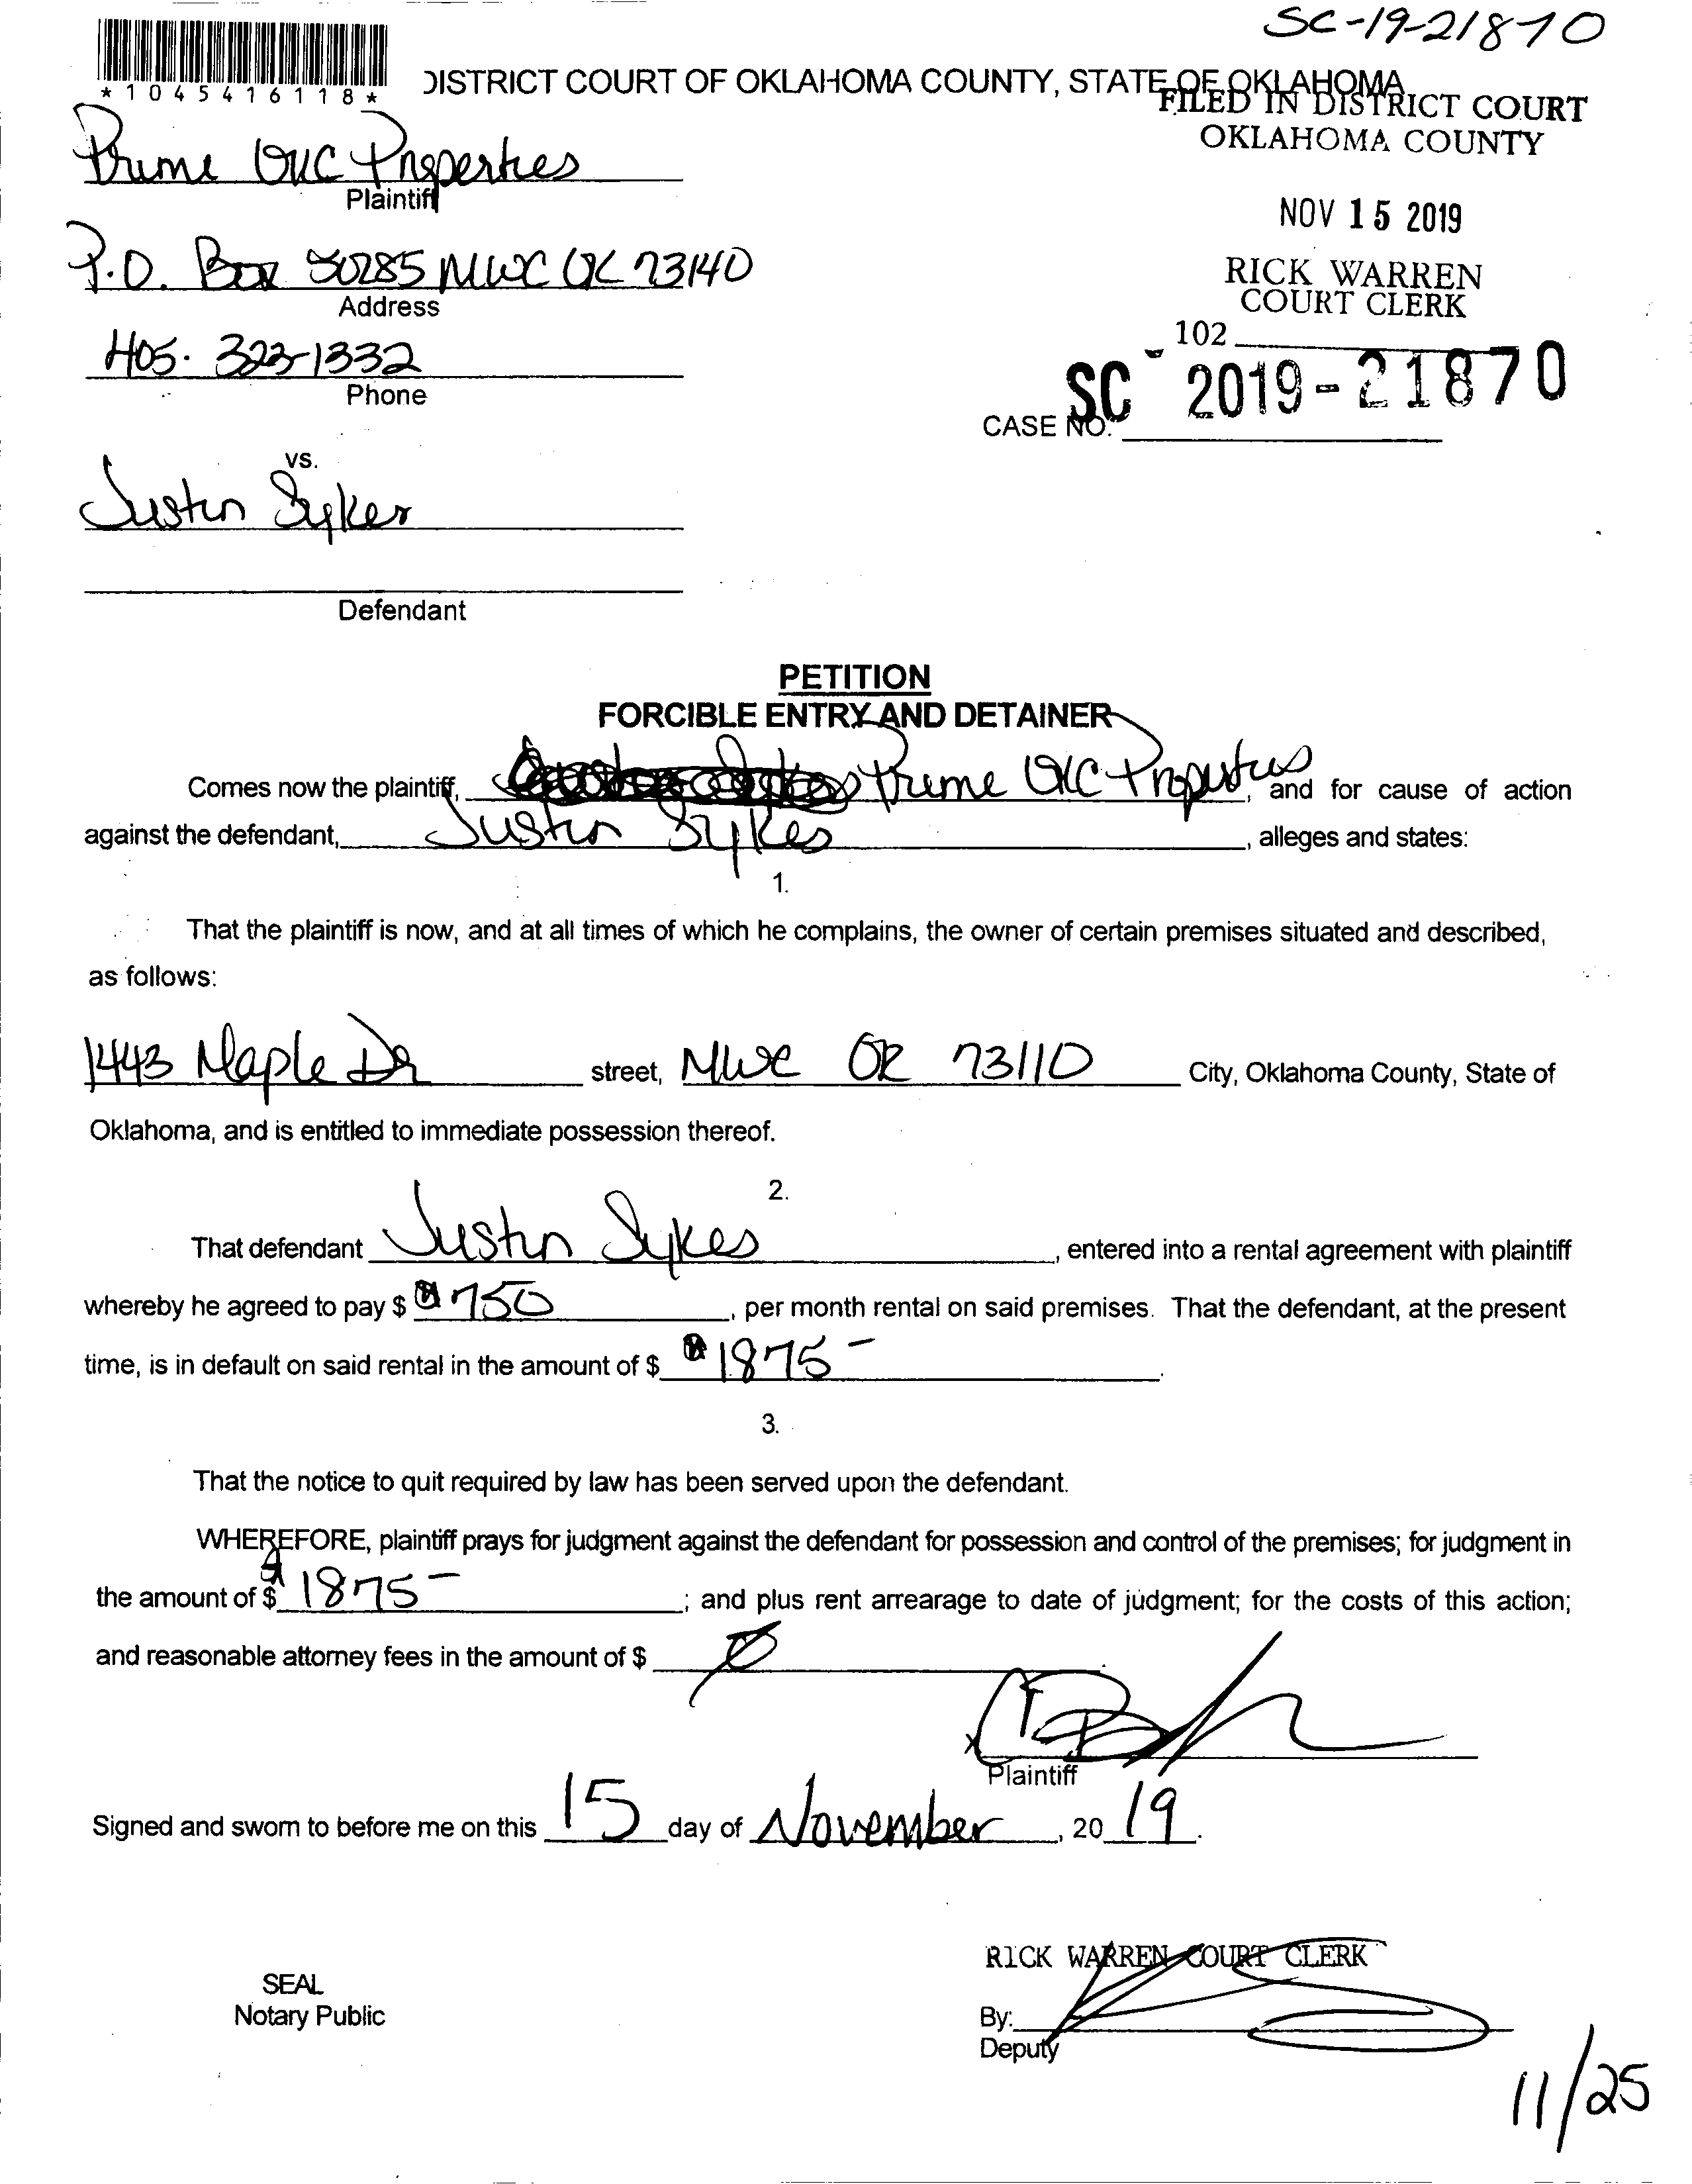 SC-19-21870
*1045416118*
DISTRICT COURT OF OKLAHOMA COUNTY, STATE OF OKLAHOMA
FILED IN DISTRICT COURT
OKLAHOMA COUNTY
Prime OKC Properties
Plaintiff
NOV 15 2019
P.O. Box 30285 MWC OK 73140
Address
RICK WARREN
COURT CLERK
405. 323-1332
Phone
102
CASE NO. SC - 2019-21870
vs.
Justin Sykes
Defendant
PETITION
FORCIBLE ENTRY AND DETAINER
Comes now the plaintiff, Prime OKC Properties, and for cause of action
against the defendant, Justin Sykes, alleges and states:
1.
That the plaintiff is now, and at all times of which he complains, the owner of certain premises situated and described,
as follows:
1443 Maple Dr street, MWC OK 73110 City, Oklahoma County, State of
Oklahoma, and is entitled to immediate possession thereof.
2.
That defendant Justin Sykes, entered into a rental agreement with plaintiff
whereby he agreed to pay $ 750, per month rental on said premises. That the defendant, at the present
time, is in default on said rental in the amount of $ 1875-.
3.
That the notice to quit required by law has been served upon the defendant.
WHEREFORE, plaintiff prays for judgment against the defendant for possession and control of the premises; for judgment in
the amount of $ 1875-; and plus rent arrearage to date of judgment; for the costs of this action;
and reasonable attorney fees in the amount of $
x
Plaintiff
Signed and sworn to before me on this 15 day of November, 2019.
RICK WARREN COURT CLERK
SEAL
Notary Public
By:
Deputy
11/25